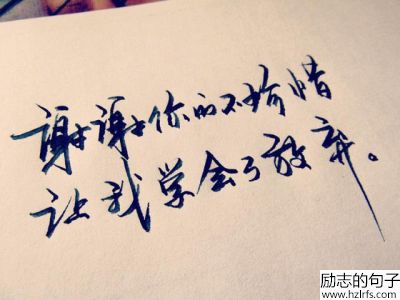 谢谢你的不珍惜
让我学会了放弃。
励志的句子
www.hzlrfs.com